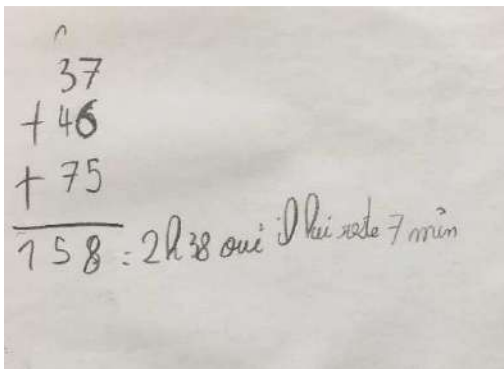 37
+ 46
+ 75
158 = 2h38 oui il lui reste 7 min